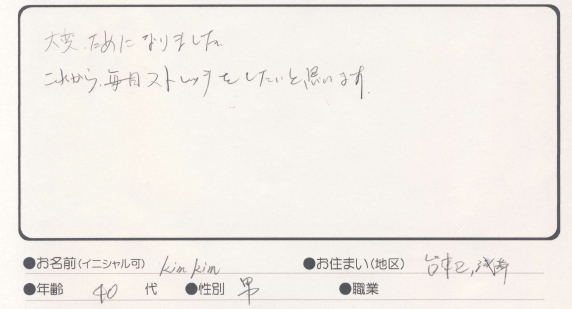 大変ためになりました
これから、毎日ストレッチをしたいと思います。
●お名前(イニシャル可) kim kim ●お住まい(地区) 台東区,浅草
●年齢 40 代 ●性別 男 ●職業